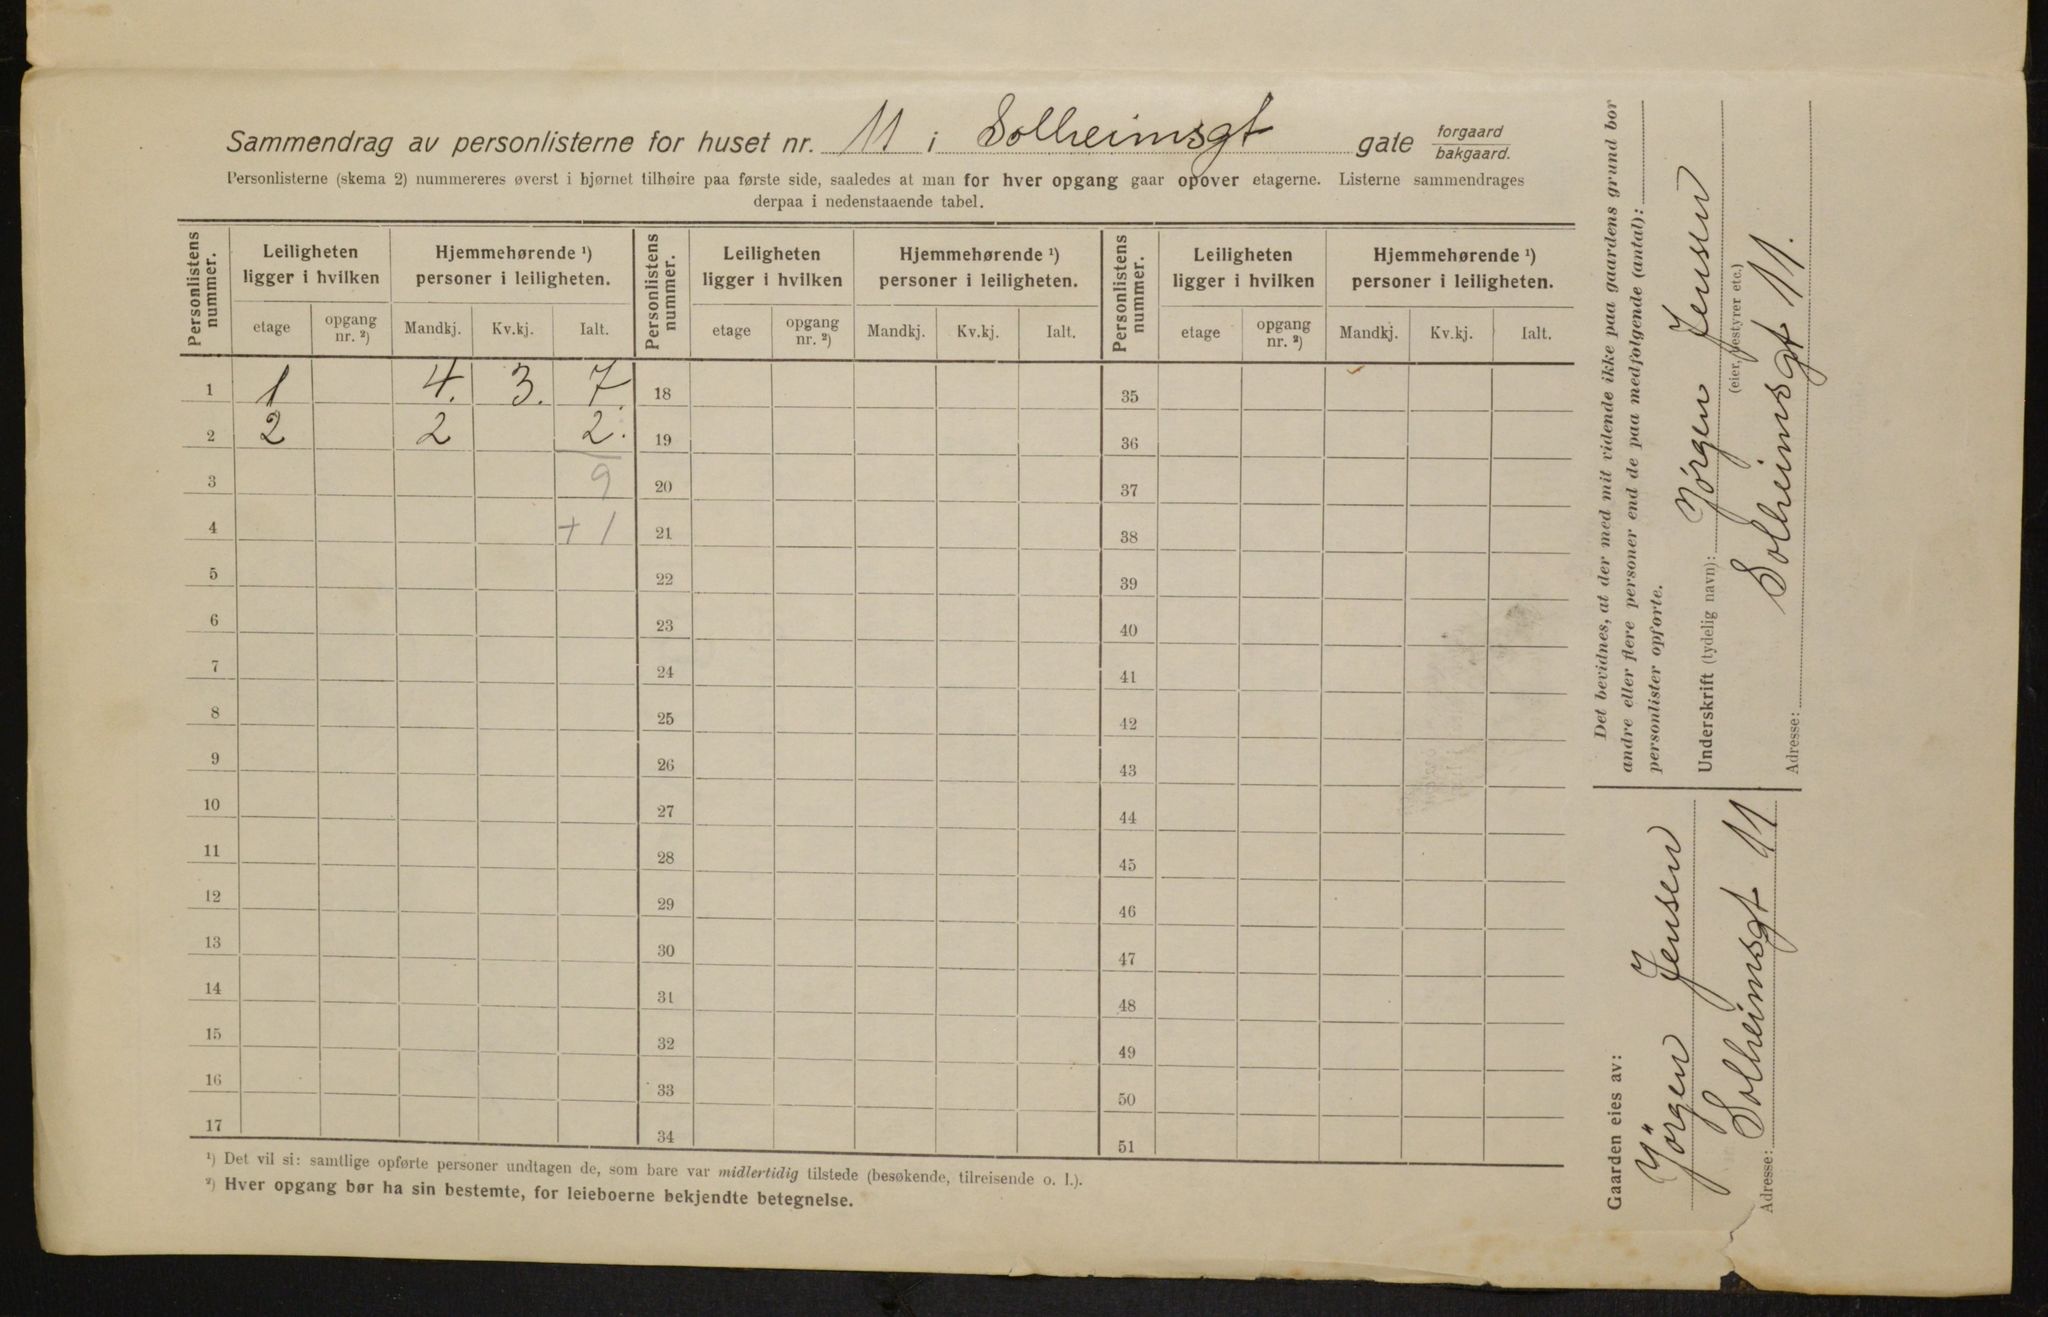 Sammendrag av personlisterne for huset nr. 11 i Solheimsgt gate forgaard bakgaard.
Personlisterne (skema 2) nummereres øverst i hjørnet tilhøire paa første side, saaledes at man for hver opgang gaar opover etagerne. Listerne sammendrages
derpaa i nedenstaaende tabel.
Personlistens nummer. Leiligheten ligger i hvilken Hjemmehørende ¹) personer i leiligheten. Personlistens nummer. Leiligheten ligger i hvilken Hjemmehørende ¹) personer i leiligheten. Personlistens nummer. Leiligheten ligger i hvilken Hjemmehørende ¹) personer i leiligheten.
etage opgang nr. ²) Mandkj. Kv.kj. Ialt. etage opgang nr. ²) Mandkj. Kv.kj. Ialt. etage opgang nr. ²) Mandkj. Kv.kj. Ialt.
1 1 4. 3. 7. 18 35
2 2 2 2. 19 36
3 9 20 37
4 +1 21 38
5 22 39
6 23 40
7 24 41
8 25 42
9 26 43
10 27 44
11 28 45
12 29 46
13 30 47
14 31 48
15 32 49
16 33 50
17 34 51
¹) Det vil si: samtlige opførte personer undtagen de, som bare var midlertidig tilstede (besøkende, tilreisende o. l.).
²) Hver opgang bør ha sin bestemte, for leieboerne bekjendte betegnelse.
Det bevidnes, at der med mit vidende ikke paa gaardens grund bor
andre eller flere personer end de paa medfølgende (antal):
personlister opførte.
Underskrift (tydelig navn): Jørgen Jensen
(eier, bestyrer etc.)
Adresse: Solheimsgt 11.
Gaarden eies av:
Jörgen Jensen
Adresse: Solheimsgt 11